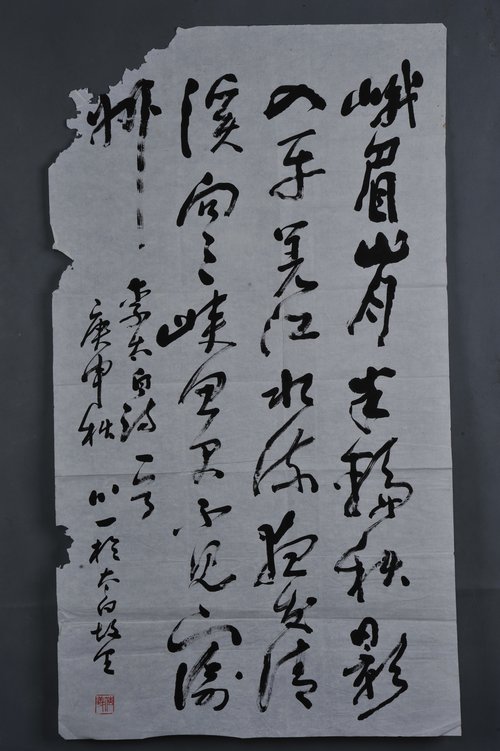 峨眉山月半輪秋影
入平羌江水流夜发清
溪向三峡思君不见下渝
州
李太白诗一首
庚申秋 於太白故里